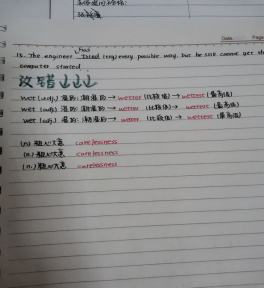 Date. Page
has
13. The engineer tried (try) every possible way, but he still cannot get the
computer started
改错↓↓↓
wet (adj.) 湿的;潮湿的 → wetter (比较级) → wettest (最高级)
wet (adj.) 湿的;潮湿的 → wetter (比较级) → wettest (最高级)
wet (adj.) 湿的;潮湿的 → wetter (比较级) → wettest (最高级)
(n.) 粗心大意 carelessness
(n.) 粗心大意 carelessness
(n.) 粗心大意 carelessness